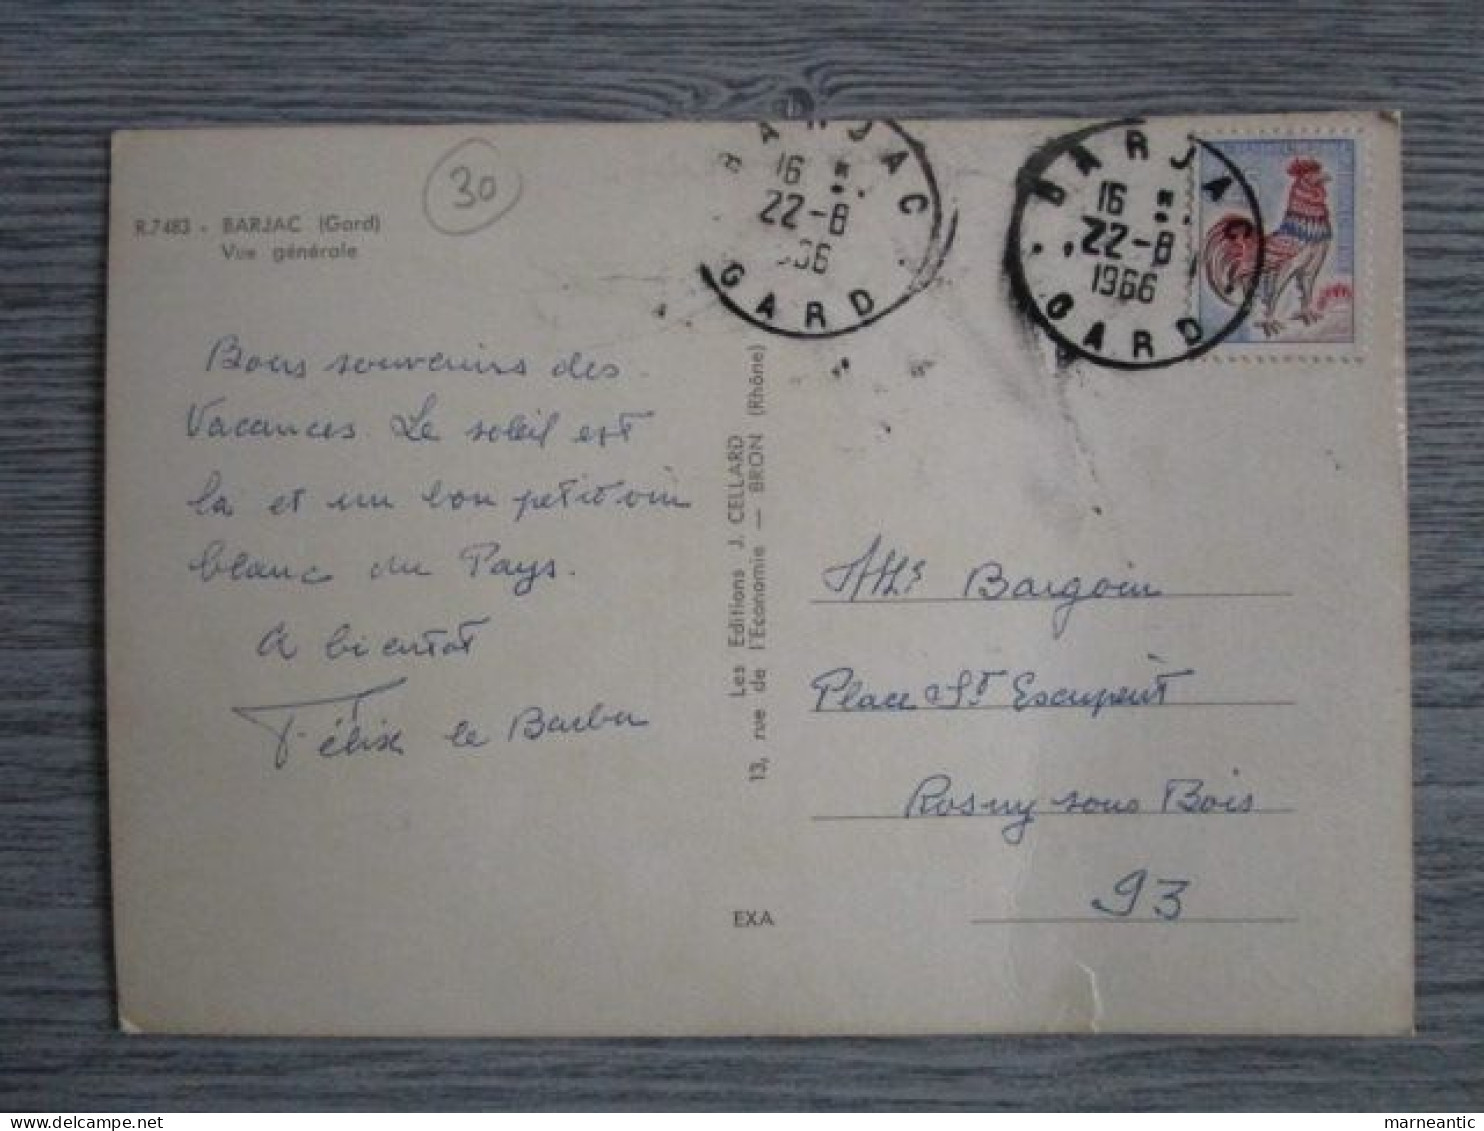 30
R.7483 - BARJAC (Gard)
Vue générale
Bons souvenirs des
Vacances. Le soleil est
là et un bon petit vin
blanc du Pays.
A bientot
Félix le Barbu
Les Editions J. CELLARD
13, rue de l'Economie — BRON (Rhône)
EXA
BARJAC
16 H
22-8
1966
GARD
BARJAC
16 H
22-8
1966
GARD
Bargoin
Place St
Rosny sous Bois
93
marneantic